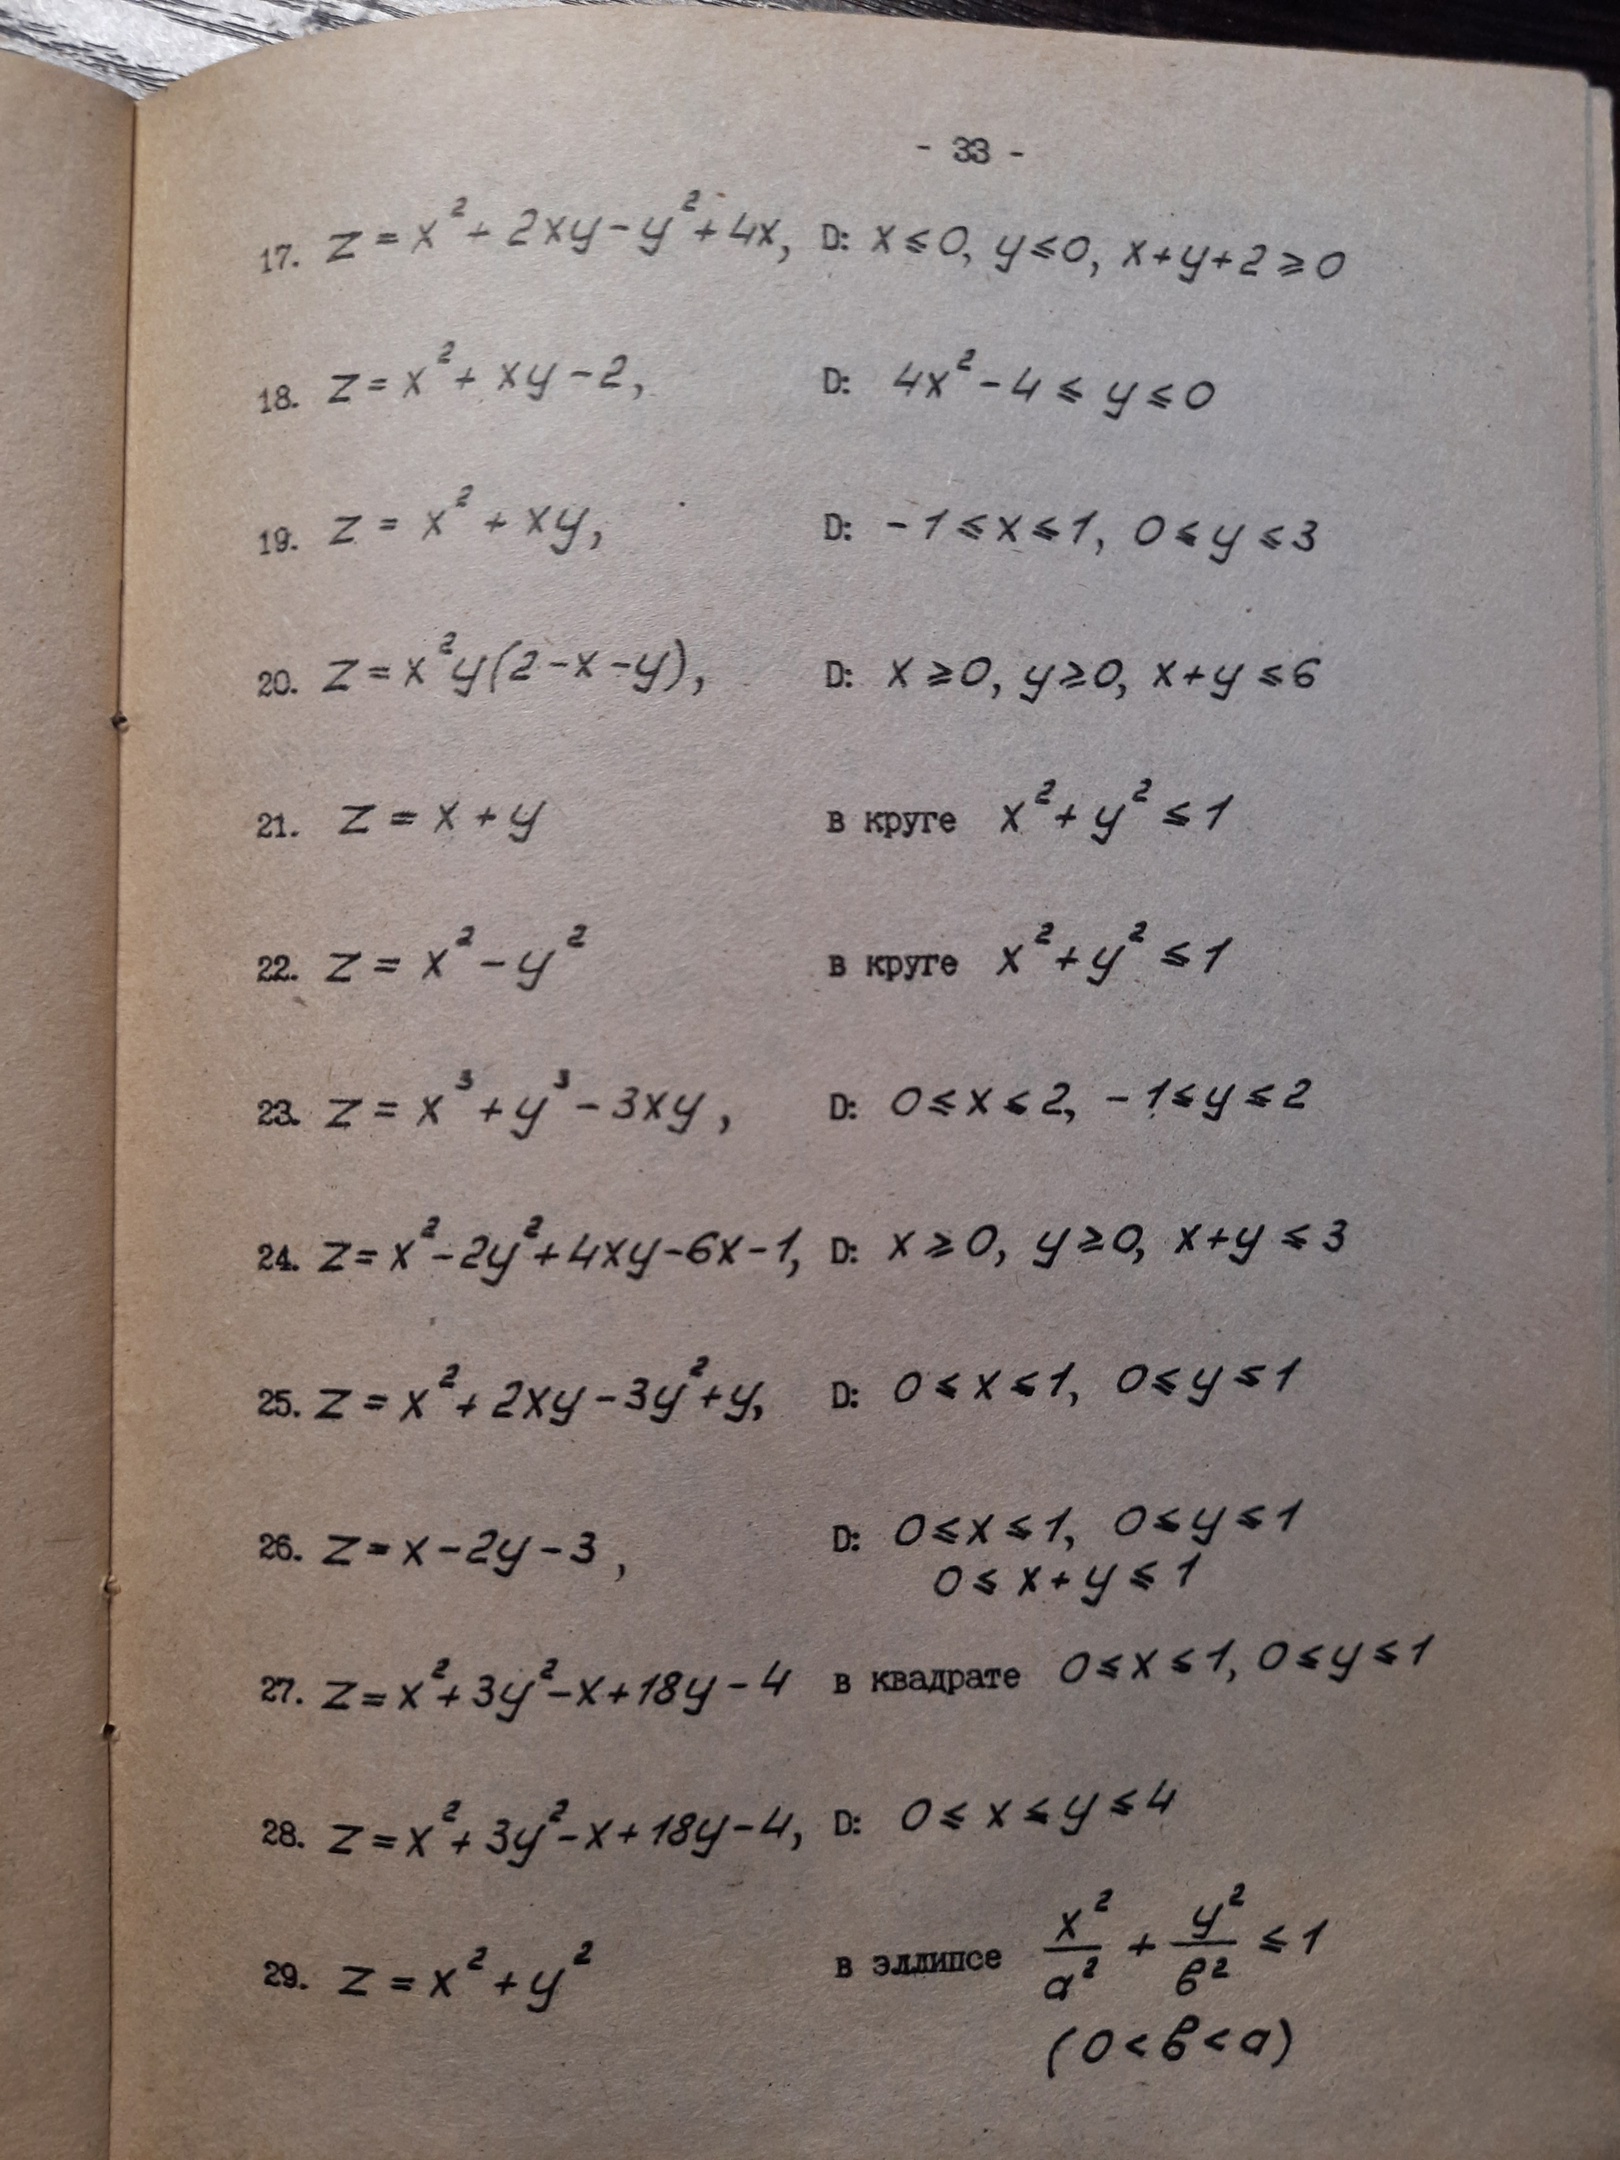 - 33 -
17. z = x² + 2xy - y² + 4x, D: x ⩽ 0, y ⩽ 0, x + y + 2 ⩾ 0
18. z = x² + xy - 2, D: 4x² - 4 ⩽ y ⩽ 0
19. z = x² + xy, D: -1 ⩽ x ⩽ 1, 0 ⩽ y ⩽ 3
20. z = x²y(2 - x - y), D: x ⩾ 0, y ⩾ 0, x + y ⩽ 6
21. z = x + y в круге x² + y² ⩽ 1
22. z = x² - y² в круге x² + y² ⩽ 1
23. z = x³ + y³ - 3xy, D: 0 ⩽ x ⩽ 2, -1 ⩽ y ⩽ 2
24. z = x² - 2y² + 4xy - 6x - 1, D: x ⩾ 0, y ⩾ 0, x + y ⩽ 3
25. z = x² + 2xy - 3y² + y, D: 0 ⩽ x ⩽ 1, 0 ⩽ y ⩽ 1
26. z = x - 2y - 3, D: 0 ⩽ x ⩽ 1, 0 ⩽ y ⩽ 1
0 ⩽ x + y ⩽ 1
27. z = x² + 3y² - x + 18y - 4 в квадрате 0 ⩽ x ⩽ 1, 0 ⩽ y ⩽ 1
28. z = x² + 3y² - x + 18y - 4, D: 0 ⩽ x ⩽ y ⩽ 4
29. z = x² + y² в эллипсе x²/a² + y²/в² ⩽ 1
(0 < в < a)